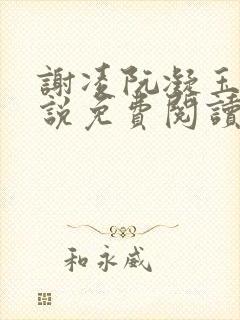 謝凌阮凝玉
說免費閱讀
和永威